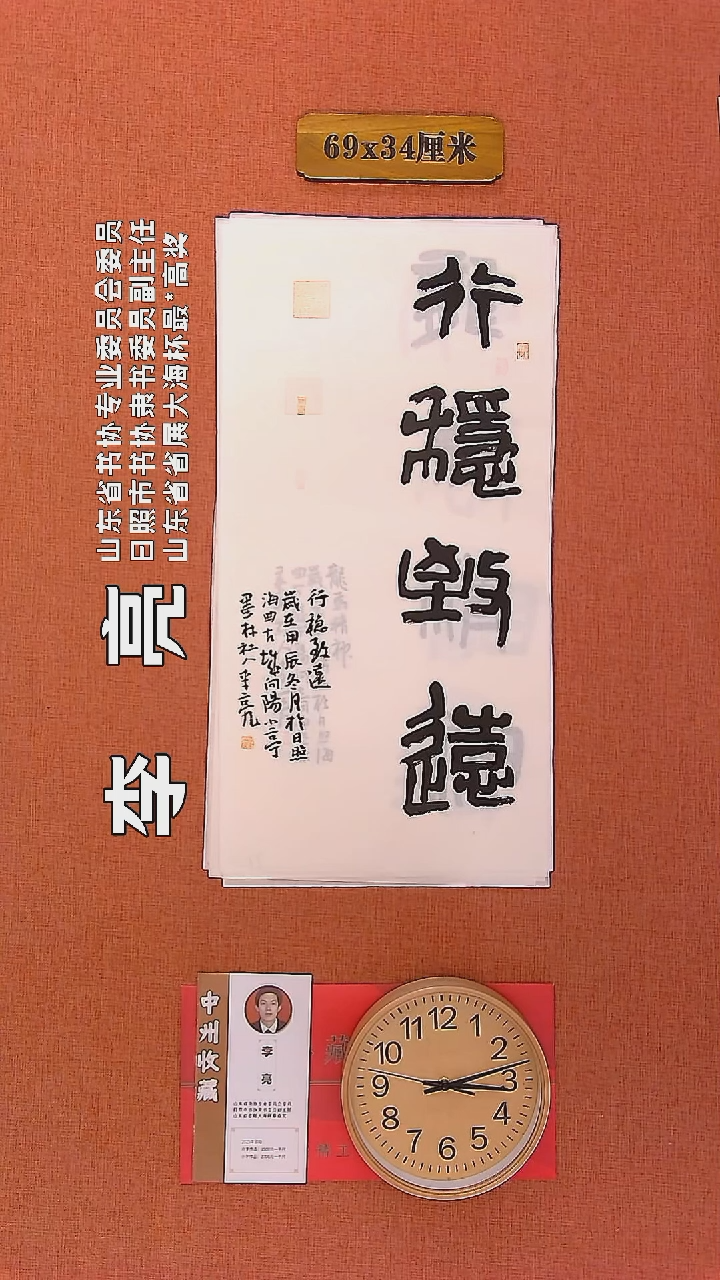 69x34厘米
山东省书协专业委员会委员
日照市书协隶书委员副主任
山东省省展大海杯最*高奖
李 亮
行穩致遠
行稳致遠
歲在甲辰冬月於日照
海曲古城向陽小言宁
墨林社人李亮
中州收藏
李亮
藏
12
1
2
3
4
5
6
7
8
9
10
11